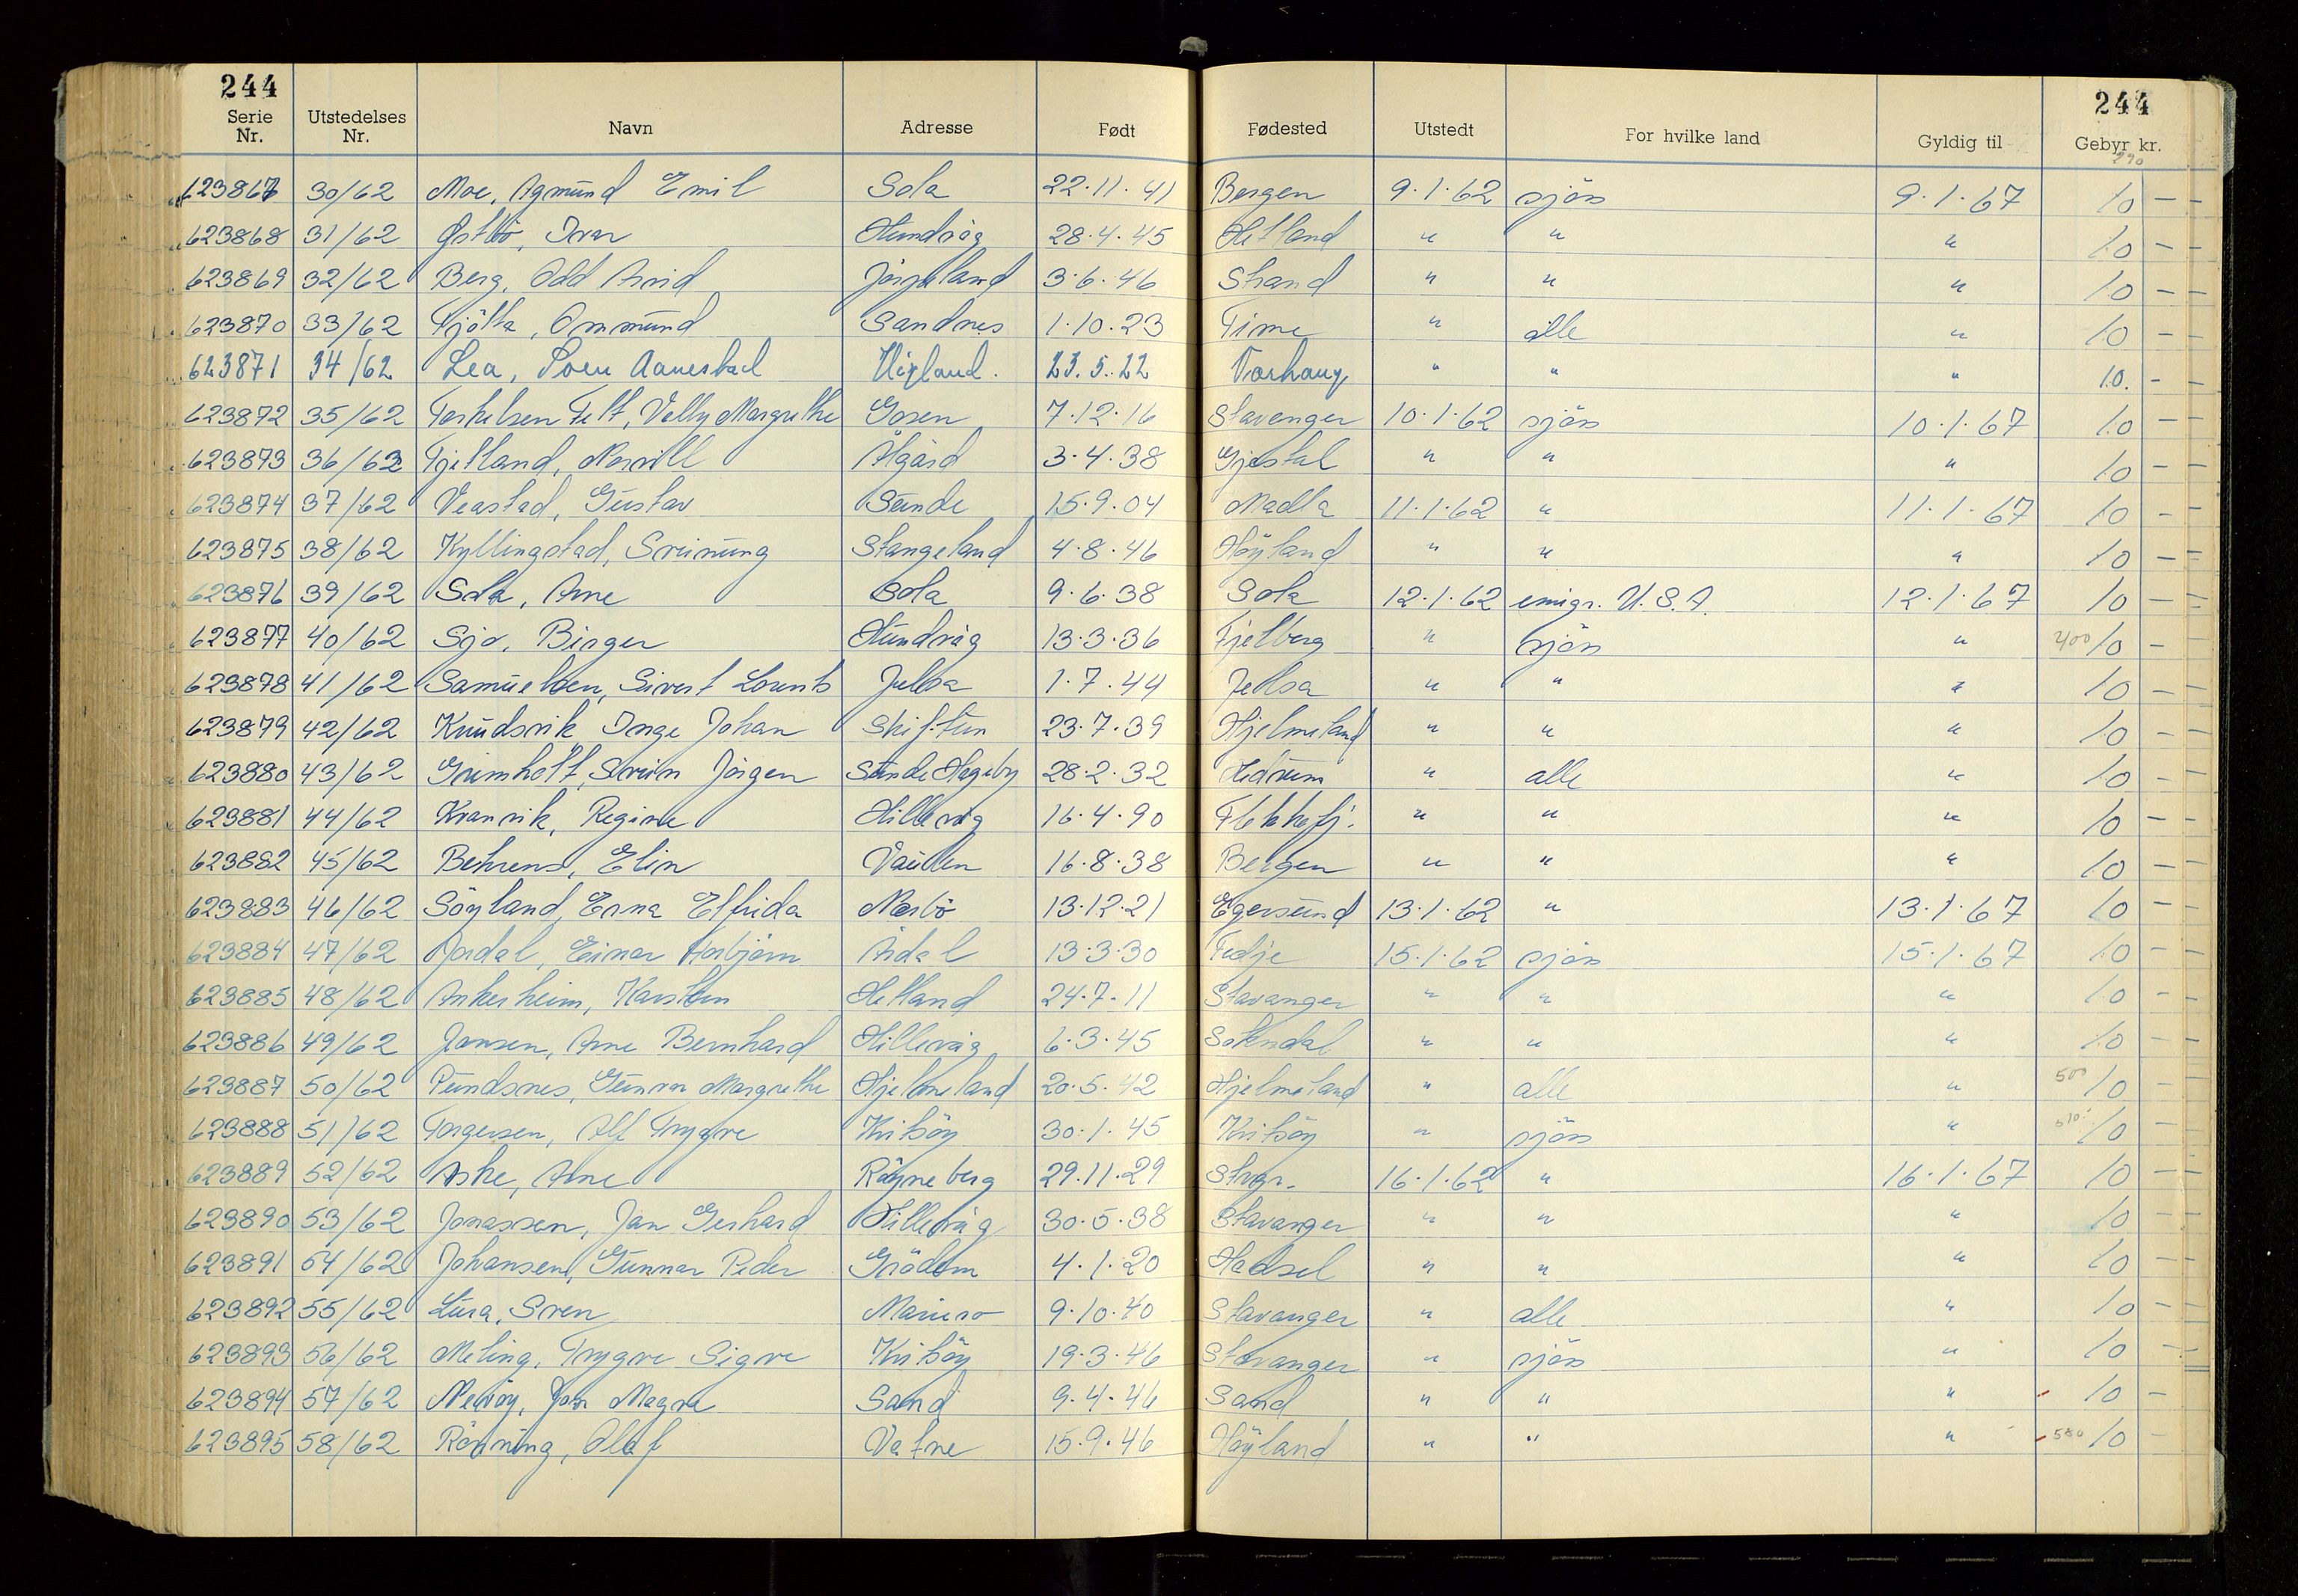 244 244
Serie Nr. Utstedelses Nr. Navn Adresse Født Fødested Utstedt For hvilke land Gyldig til Gebyr kr.
623867 30/62 Moe, Agmund Emil Sola 22.11.41 Bergen 9.1.62 sjös 9.1.67 10 — —
623868 31/62 Østbö, Ivar Hundvåg 28.4.45 Hetland " " " 10 — —
623869 32/62 Berg, Odd Arvid Jörpeland 3.6.46 Strand " " " 10 — —
623870 33/62 Tjötta, Ommund Sandnes 1.10.23 Time " alle " 10 — —
623871 34/62 Lea, Aanestad 23.5.22 Varhaug " " " 10. - —
623872 35/62 Torkelsen Felt, Velly Margrethe Gosen 7.12.16 Stavanger 10.1.62 sjös 10.1.67 10 — —
623873 36/62 Fjetland, Norvill Ålgård 3.4.38 Gjestal " " " 10 — —
623874 37/62 Veastad, Gustav Sunde 15.9.04 Madla 11.1.62 " 11.1.67 10 — —
623875 38/62 Kyllingstad, Sveinung Stangeland 4.8.46 Höyland " " " 10 — —
623876 39/62 Sola, Arne Sola 9.6.38 Sola 12.1.62 emigr. U.S.A. 12.1.67 10 — —
623877 40/62 Sjo, Birger Hundvåg 13.3.36 Fjelberg " sjös " 400 10 —
623878 41/62 Samuelsen, Sivert Lorents Jelsa 1.7.44 Jelsa " " " 10 — —
623879 42/62 Knudsvik Inge Johan Skiftun 23.7.39 Hjelmeland " " " 10 — —
623880 43/62 Grimholt, Svein Jörgen Sunde Hageby 28.2.32 Hedrum " alle " 10 — —
623881 44/62 Kranvik, Regine Hillevåg 16.4.90 Flekkefj. " " " 10 — —
623882 45/62 Behrens, Elin Vaulen 16.8.38 Bergen " " " 10 — —
623883 46/62 Söyland, Erna Elfrida Nærbö 13.12.21 Egersund 13.1.62 " 13.1.67 10 — —
623884 47/62 Årdal, Einar Asbjörn Årdal 13.3.30 Fedje 15.1.62 sjös 15.1.67 10 — —
623885 48/62 Ankerheim, Karsten Hetland 24.7.11 Stavanger " " " 10 — —
623886 49/62 Jansen, Arne Bernhard Hillevåg 6.3.45 Sokndal " " " 10 — —
623887 50/62 Pundsnes, Gunvor Margrethe Hjelmeland 20.5.42 Hjelmeland " alle " 500 10 —
623888 51/62 Torgersen, Alf Trygve Kvitsöy 30.1.45 Kvitsöy " sjös " 10 —
623889 52/62 Aske, Arne Röyneberg 29.11.29 Stvgr. 16.1.62 " 16.1.67 10 — —
623890 53/62 Jonassen, Jan Gerhard Hillevåg 30.5.38 Stavanger " " " 10 — —
623891 54/62 Johansen, Gunnar Peder Grödem 4.1.20 Hadsel " " " 10 — —
623892 55/62 Lura, Sven Mariero 9.10.40 Stavanger " alle " 10 — —
623893 56/62 Meling, Trygve Sigve Kvitsöy 19.3.46 Stavanger " sjös " 10 — —
623894 57/62 Nevöy, Magne Sand 9.4.46 Sand " " " 10 —
623895 58/62 Rönning, Olaf Vatne 15.9.46 Höyland " " " 580 10 —